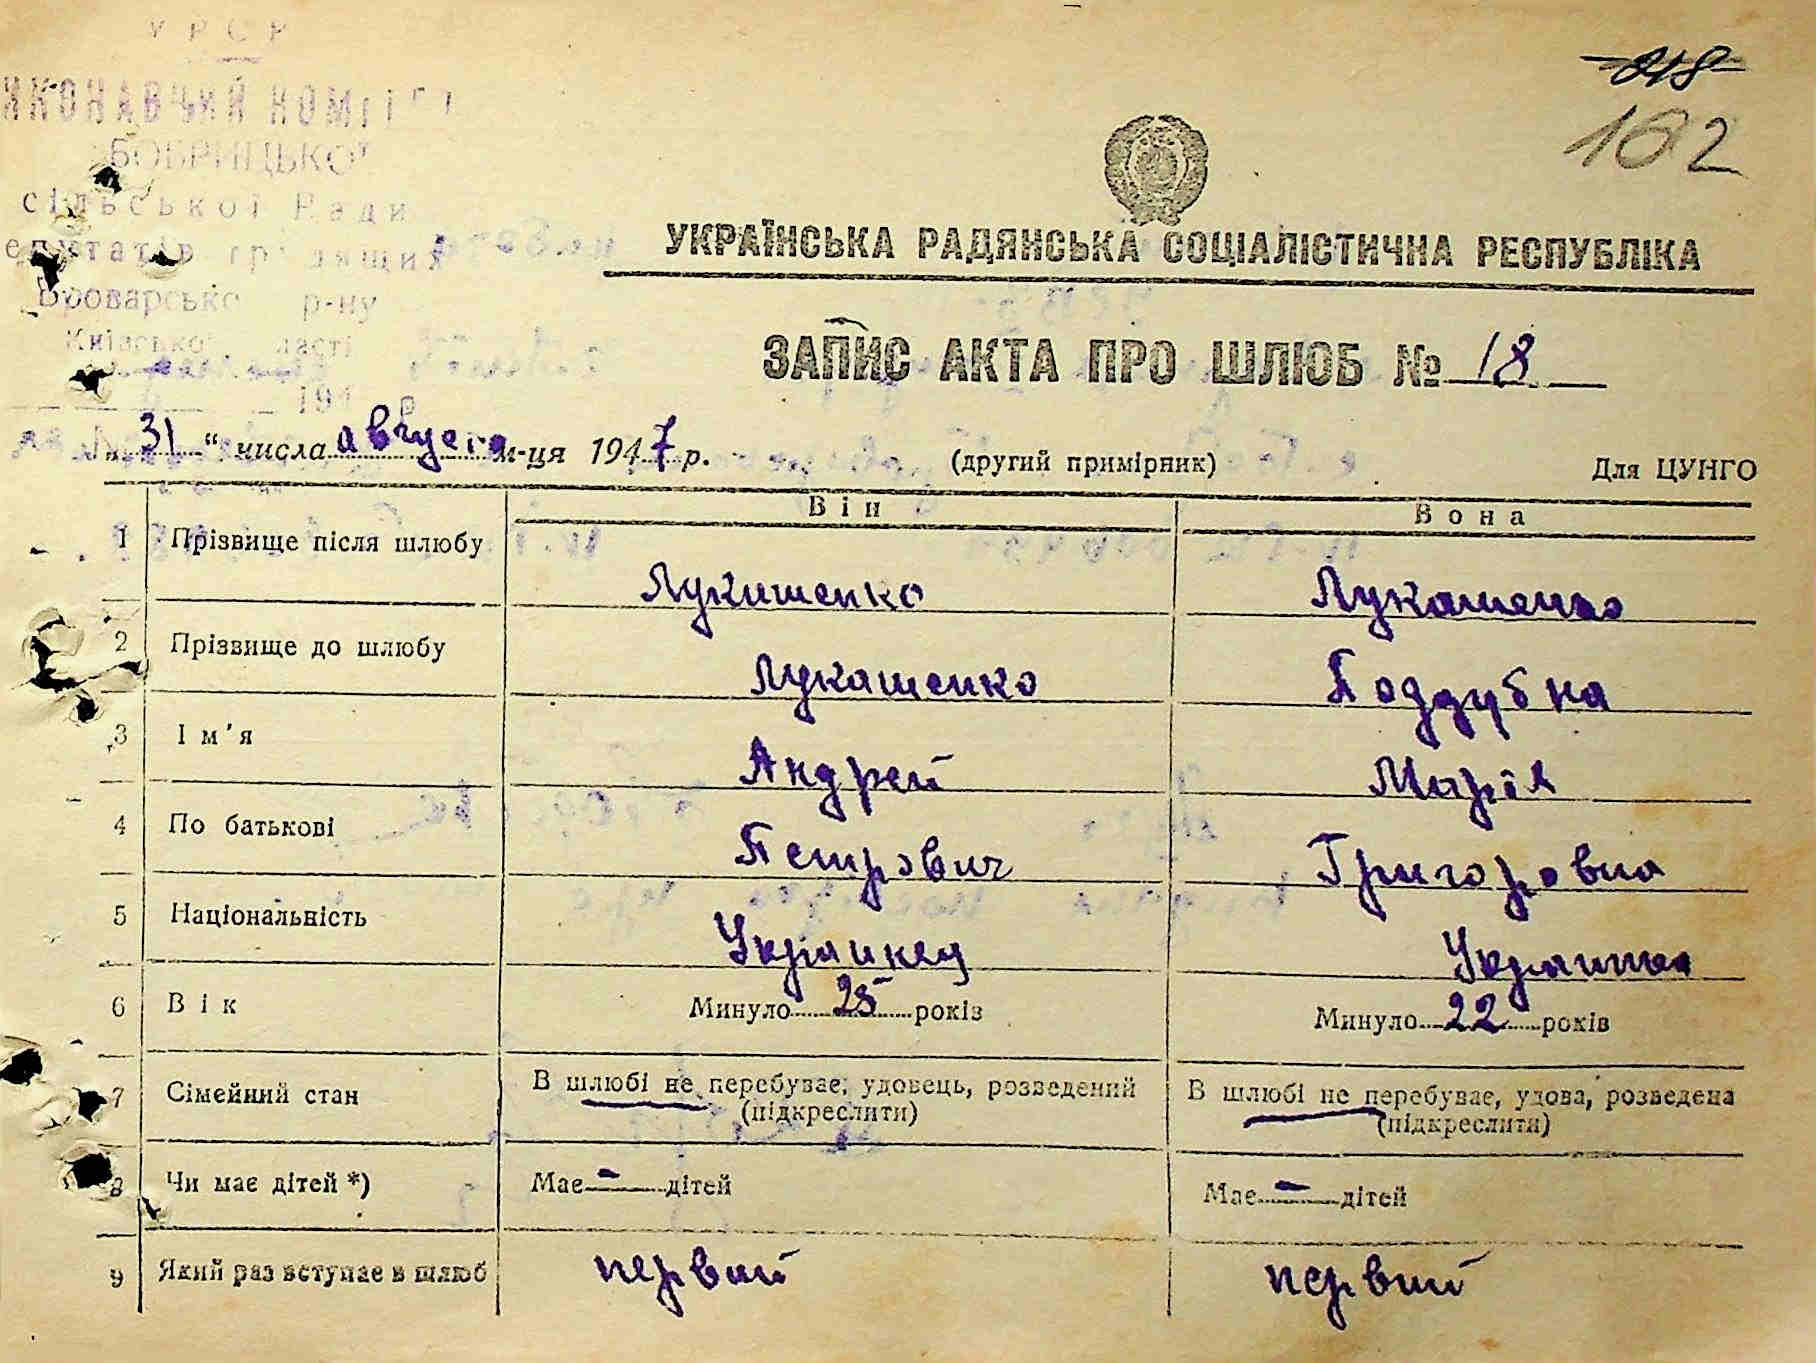 УРСР
ИКОНАВЧИЙ КОМІТЕТ
БОБРИЦЬКОЇ
сільської Ради
епутатів трудящих
Броварсько р-ну
Київсько ласті
194 р
218
182
УКРАЇНСЬКА РАДЯНСЬКА СОЦІАЛІСТИЧНА РЕСПУБЛІКА
ЗАПИС АКТА ПРО ШЛЮБ № 18
„31“ числа августа м-ця 1947 р. (другий примірник) Для ЦУНГО
Він Вона
1 Прізвище після шлюбу Лукашенко Лукашенко
2 Прізвище до шлюбу Лукашенко Поддубна
3 Ім'я Андрей Марія
4 По батькові Петрович Григоровна
5 Національність Украинец Украинка
6 Вік Минуло 25 років Минуло 22 років
7 Сімейний стан В шлюбі не перебуває, удовець, розведений (підкреслити) В шлюбі не перебуває, удова, розведена (підкреслити)
8 Чи має дітей *) Має - дітей Має - дітей
9 Який раз вступає в шлюб первий первий